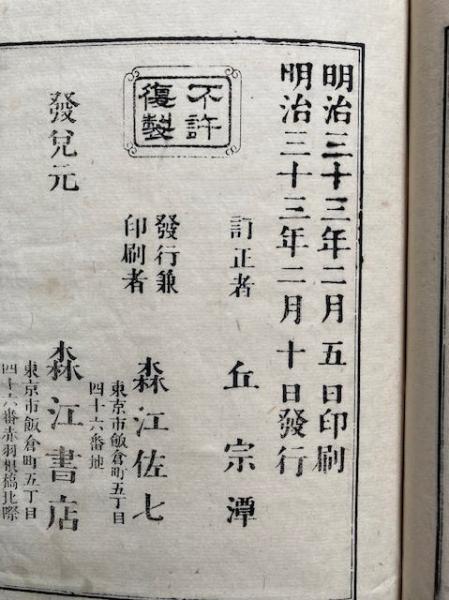 明治三十三年二月五日印刷
明治三十三年二月十日發行
不許
復製
訂正者
丘宗潭
發行兼
印刷者
森江佐七
東京市飯倉町五丁目
四十六番地
發兌元
森江書店
東京市飯倉町五丁目
四十六番赤羽根橋北際